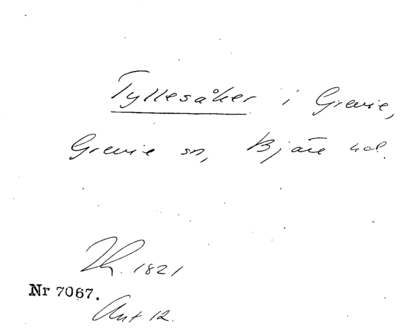 Tyllesåker i Grevie,
Grevie sn, Bjäre hd.
Th. 1821
Nr 7067.
Akt 12.